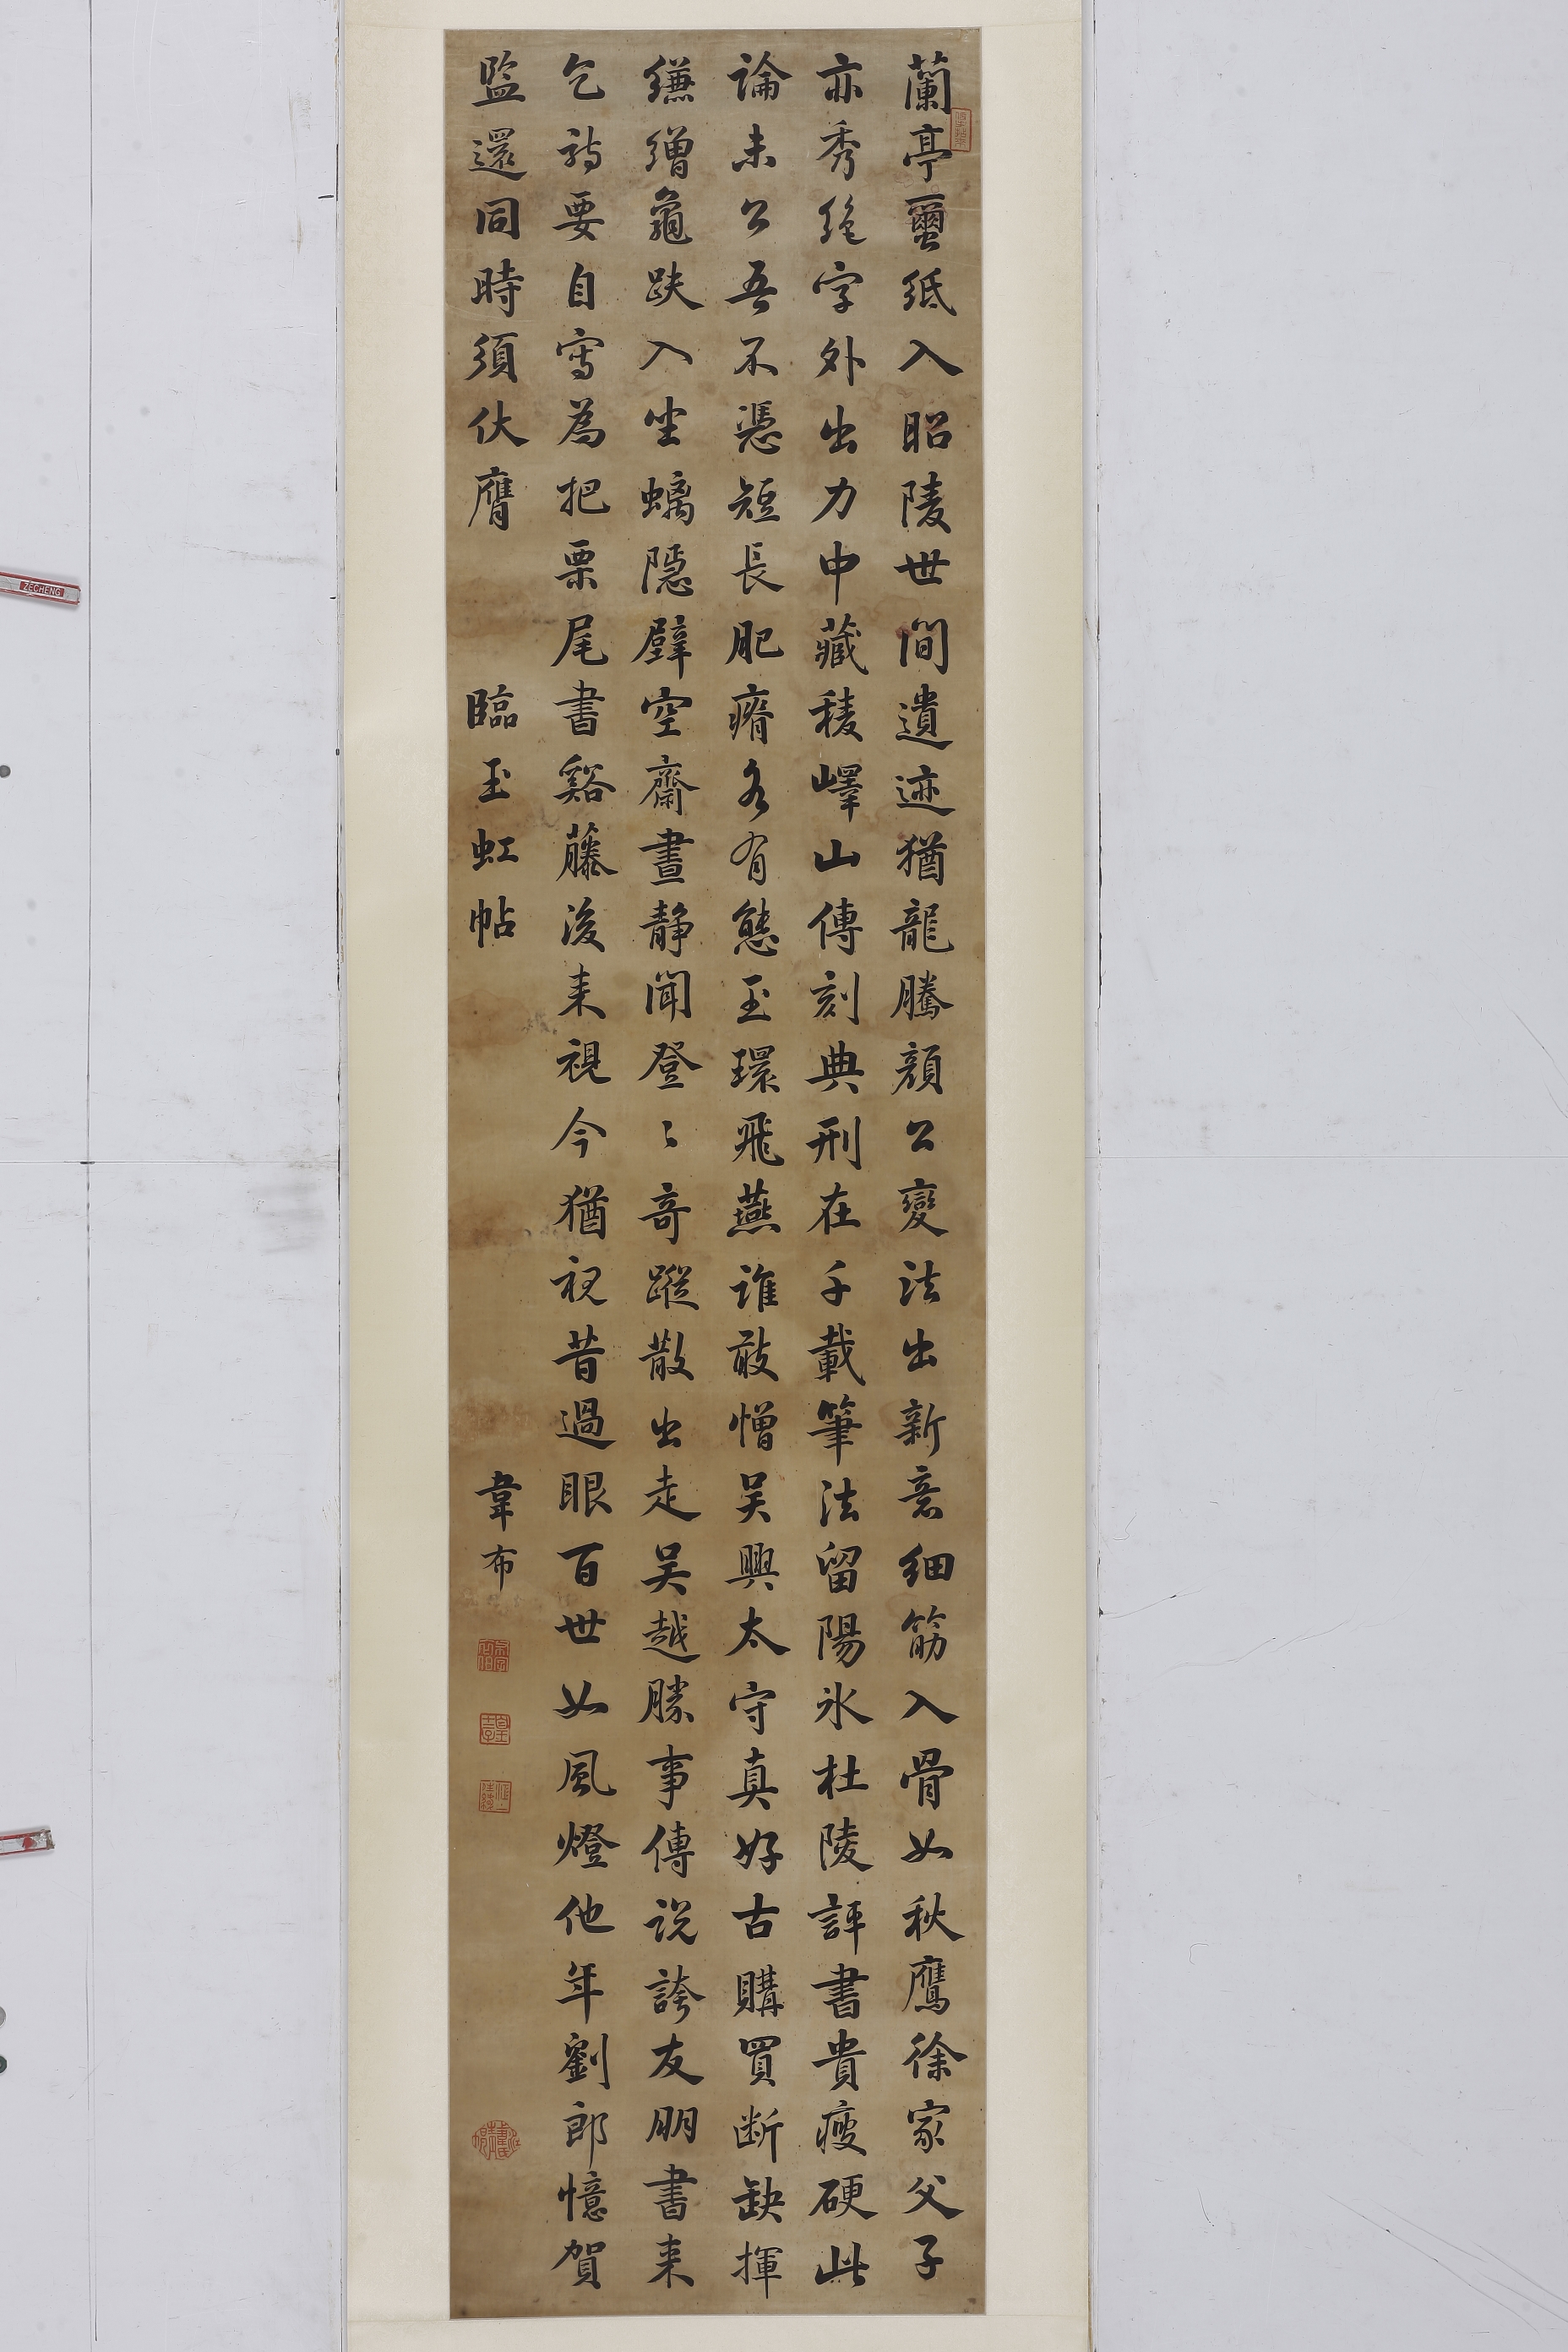 蘭亭璽紙入昭陵世間遺迹猶龍騰顏公變法出新意細筋入骨如秋鷹徐家父子
亦秀絕字外出力中藏稜嶧山傳刻典刑在千載筆法留陽冰杜陵評書貴瘦硬此
論未公吾不憑短長肥瘠各有態玉環飛燕誰敢憎吳興太守真好古購買斷缺揮
縑繒龜趺入坐螭隱壁空齋晝靜聞登〻奇蹤散出走吳越勝事傳說誇友朋書來
乞詩要自寫為把栗尾書谿藤後來視今猶視昔過眼百世如風燈他年劉郎憶賀
監還同時須伏膺
臨玉虹帖
韋布
ZECHENG